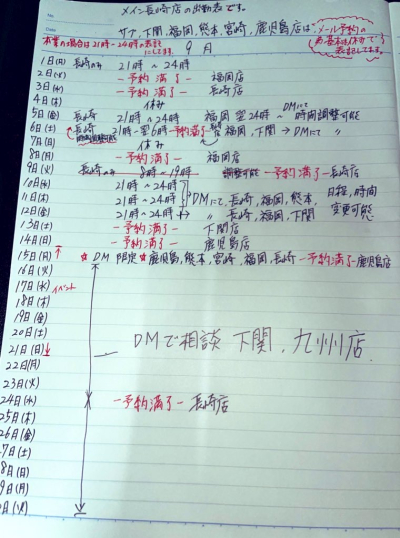 メイン長崎店の出勤表です。
サブ、下関、福岡、熊本、宮崎、鹿児島店は
メール予約の
為、基本は休みで
表記してます。
本業の場合は21時〜24時の表記
にしてます。
9月
1日(月) 長崎のみ 21時〜24時
2日(火) -予約満了- 福岡店
3日(水) -予約満了- 長崎店
4日(木) 休み
5日(金) 長崎 21時〜24時 福岡翌24時〜 DMにて時間調整可能
6日(土) 長崎 21時-翌6時-予約満了- 福岡、下関→DMにて 〃
7日(日) 休み
8日(月) -予約満了- 福岡店
9日(火) 長崎のみ 8時〜19時 調整可能 -予約満了-長崎店
10日(水) 21時〜24時
11日(木) 21時〜24時 DMにて、長崎、福岡、熊本、 日程、時間
12日(金) 21時〜24時 〃 長崎、福岡、下関 変更可能
13日(土) -予約満了- 下関店
14日(日) -予約満了- 鹿児島店
15日(月) ★DM限定★鹿児島、熊本、宮崎、福岡、長崎-予約満了-鹿児島店
16日(火)
17日(水) イベント
18日(木)
19日(金)
20日(土)
DMで相談 下関、九州店
21日(日)
22日(月)
23日(火)
24日(水) -予約満了- 長崎店
25日(木)
26日(金)
7日(土)
8日(日)
9日(月)
0日(火)